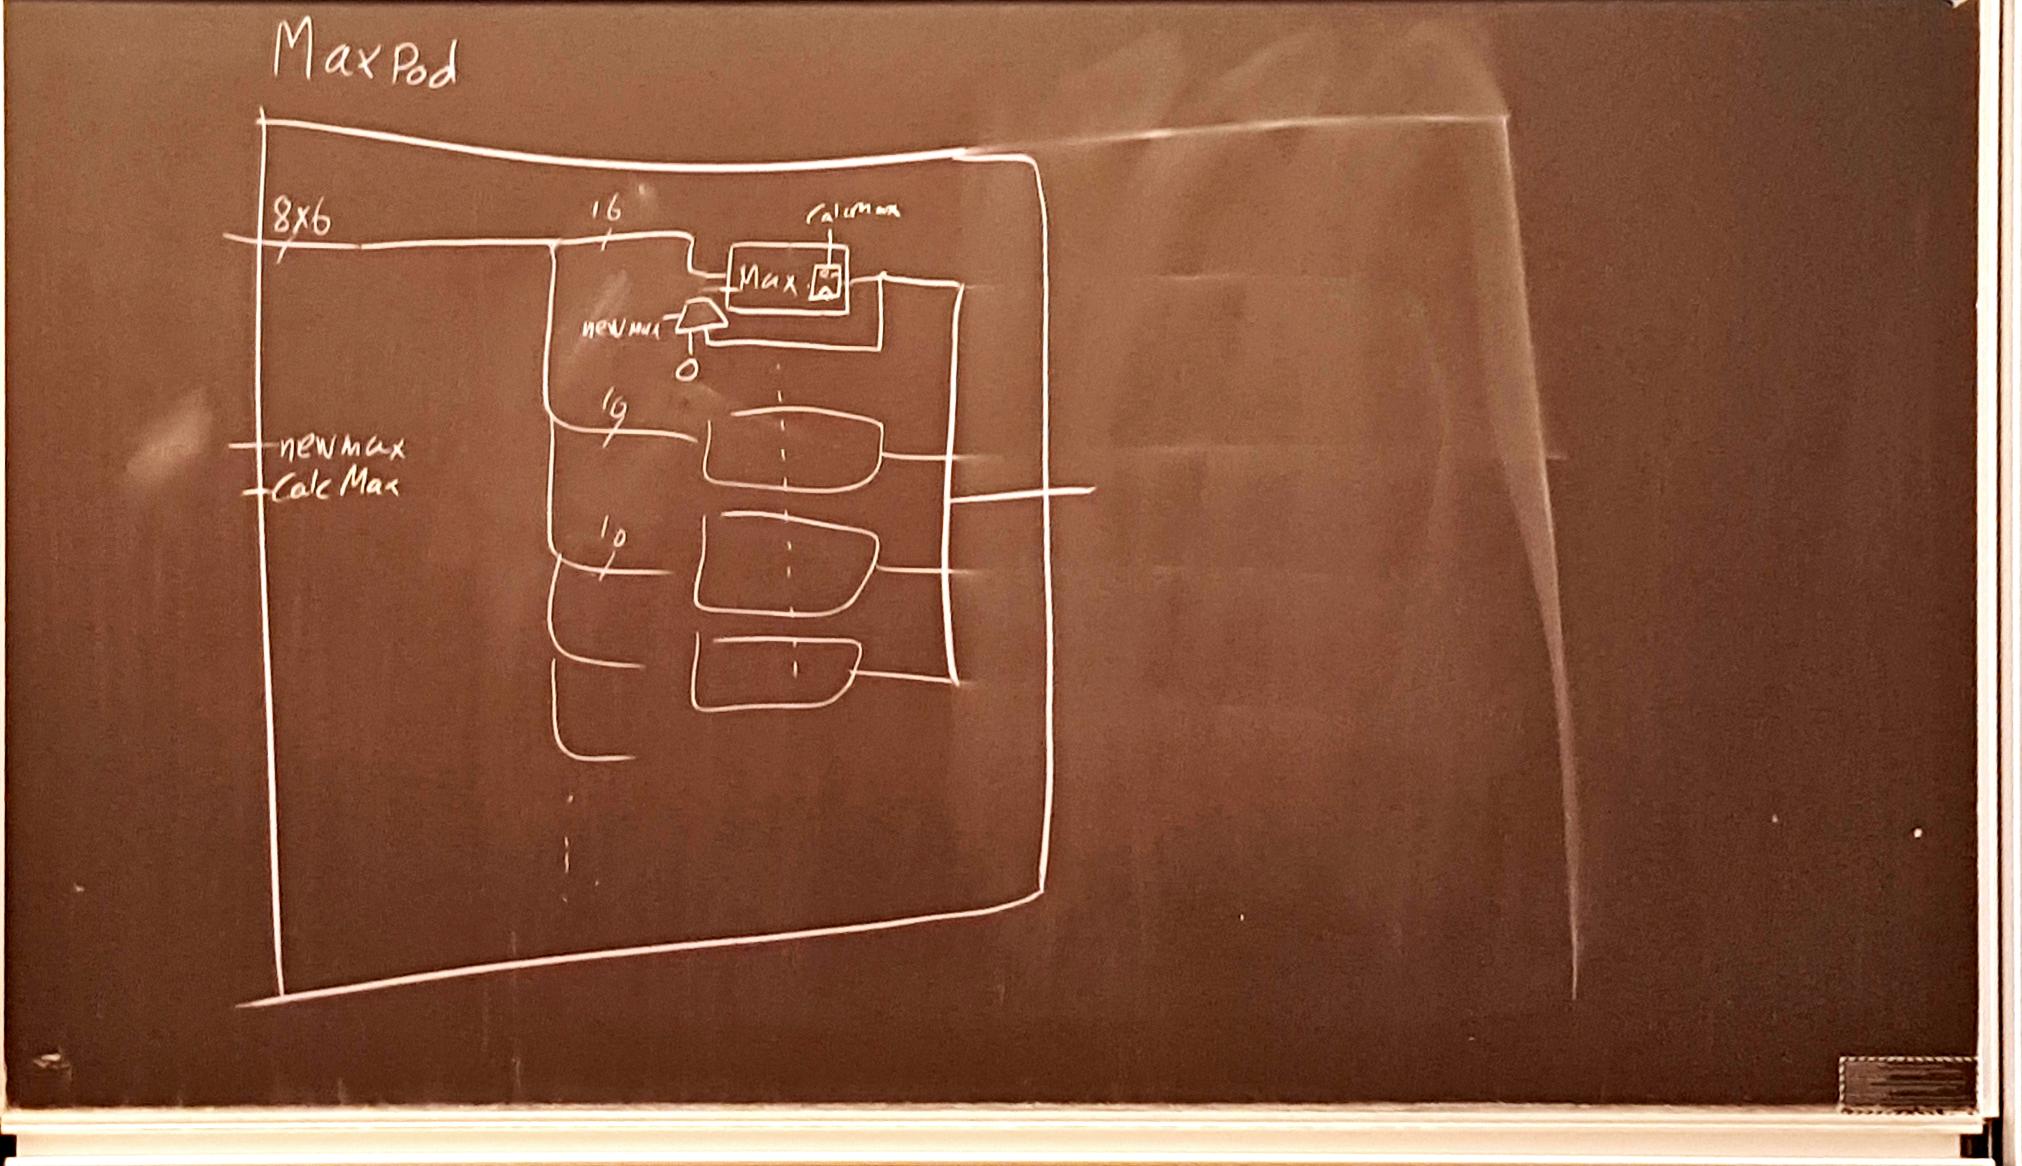 MaxPod
8x6
16
CalcMax
Max
newmax
0
newmax
CalcMax